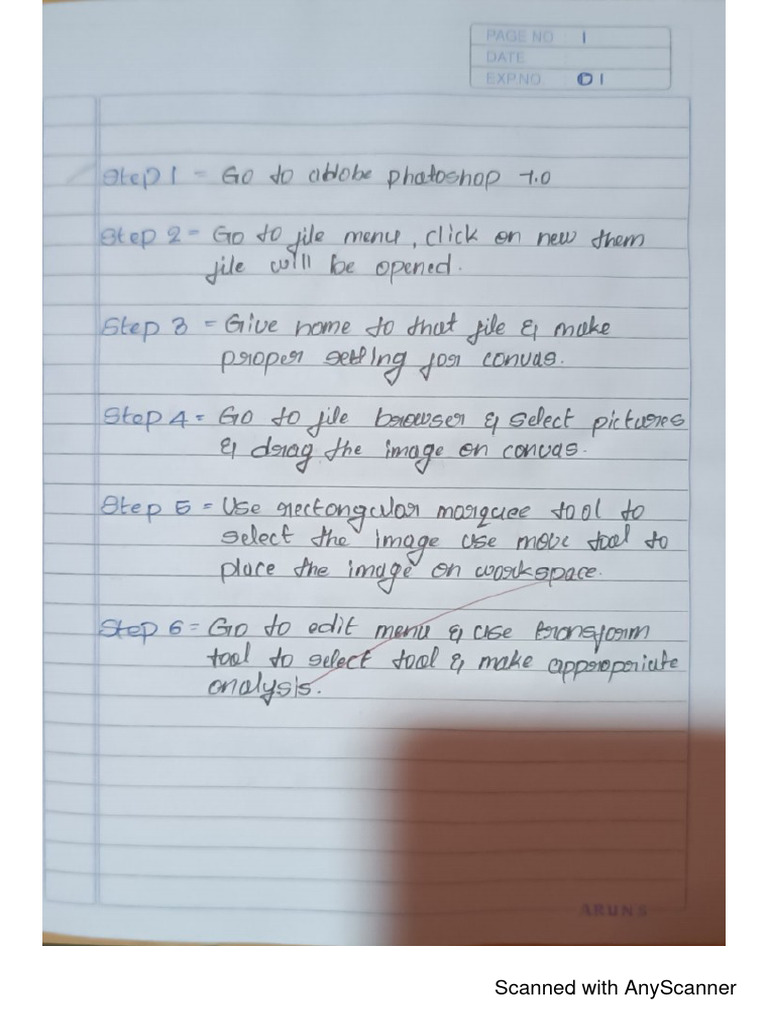 PAGE NO 1
DATE
EXP.NO. 01
Step 1 = Go to adobe photoshop 7.0
Step 2 = Go to file menu, click on new them
file will be opened.
Step 3 = Give name to that file & make
proper setting for canvas.
Step 4 = Go to file browser & select pictures
& drag the image on canvas.
Step 5 = Use rectangular marquee tool to
select the image use move tool to
place the image on workspace.
Step 6 = Go to edit menu & use transform
tool to select tool & make appropriate
analysis.
ARUNS
Scanned with AnyScanner